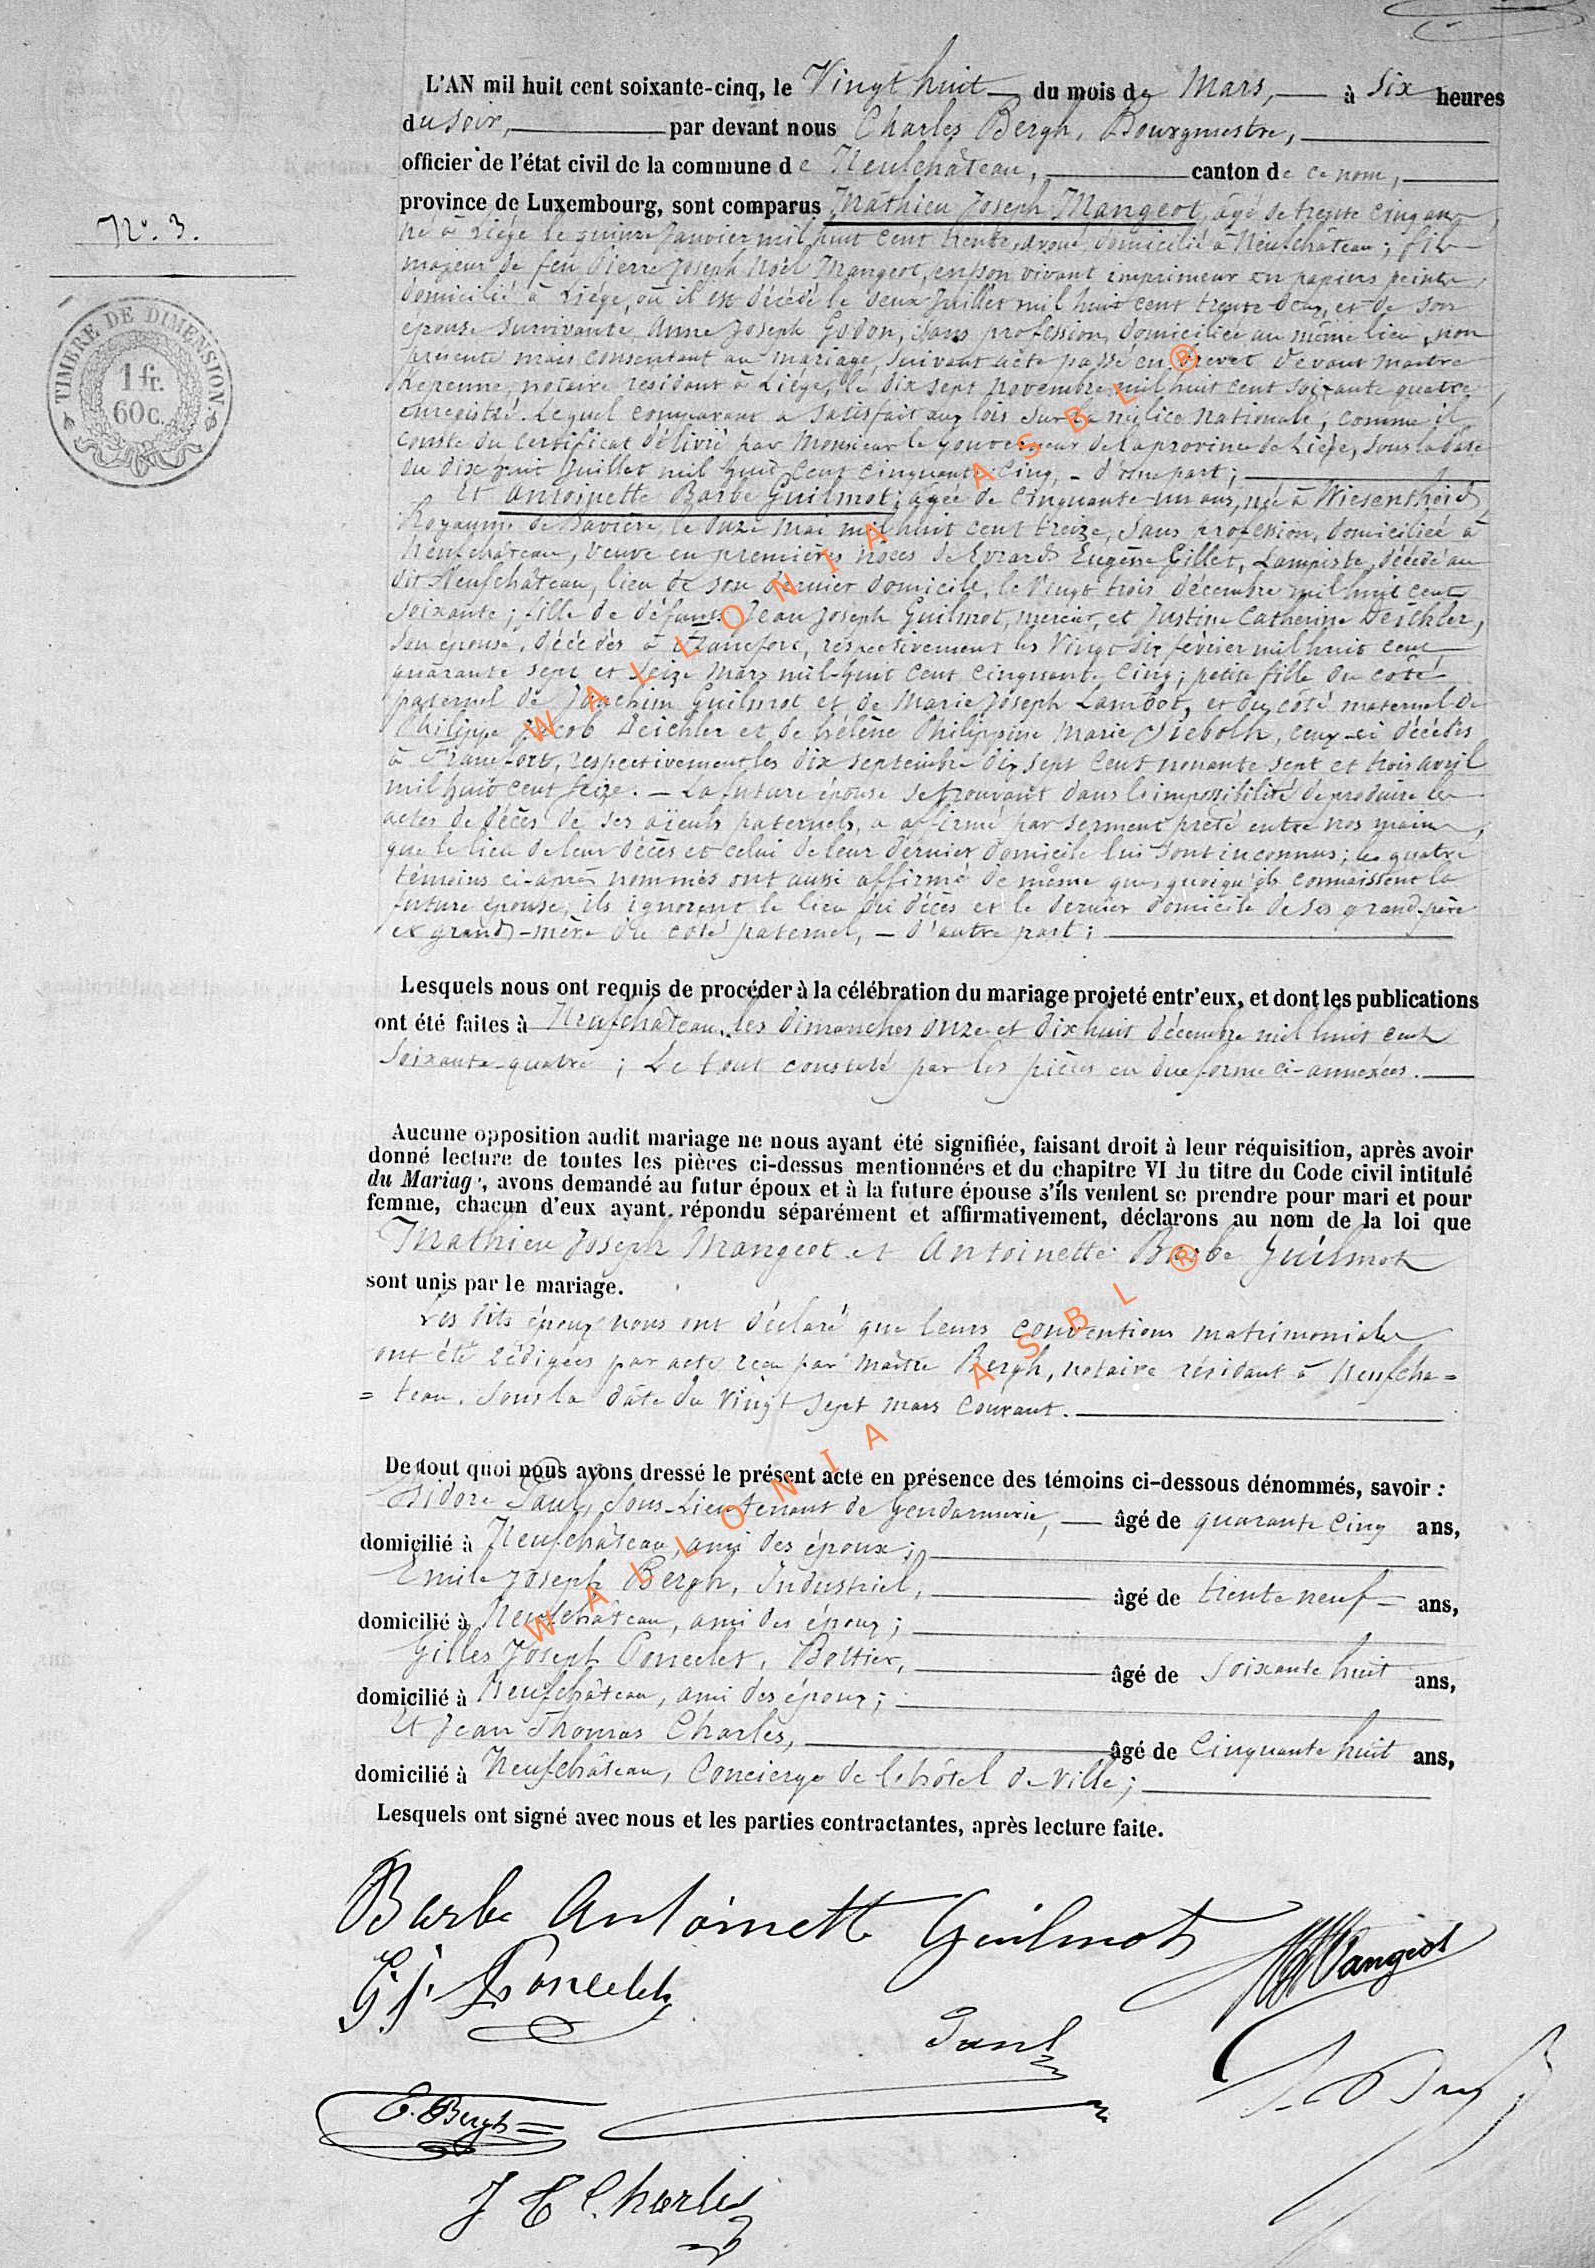 L'AN mil huit cent soixante-cinq, le Vingt huit du mois de Mars, à Six heures
du soir, par devant nous Charles Bergh, Bourgmestre,
officier de l'état civil de la commune de Neufchâteau, canton de ce nom,
province de Luxembourg, sont comparus Mathieu Joseph Mangeot, âgé de trente cinq ans,
N° 3.
né à Liége le quinze Janvier mil huit cent trente, domicilié à Neufchâteau; fils
majeur de feu Pierre Joseph Noël Mangeot, en son vivant imprimeur en papiers peints,
domicilié à Liége, où il est décédé le deux Juillet mil huit cent trente deux, et de son
épouse survivante Anne Joseph Godon, sans profession, domiciliée au même lieu, non
présente mais consentant au mariage, suivant acte passé en brevet devant maître
Kepenne, notaire résidant à Liége, le dix sept novembre mil huit cent soixante quatre,
enregistré. Lequel comparant a satisfait aux lois sur la milice nationale, comme il
conste du certificat délivré par Monsieur le gouverneur de la province de Liége, sous la date
du dix huit Juillet mil huit cent cinquante cinq, - d'une part;
Et Antoinette Barbe Guilmot, âgée de cinquante-un ans, née à Wiesentheid,
Royaume de Bavière, le onze mai mil huit cent treize, sans profession, domiciliée à
Neufchâteau, veuve en premières noces de Evrard Eugène Gillet, Lampiste, décédé au
dit Neufchâteau, lieu de son dernier domicile, le vingt trois décembre mil huit cent
soixante; fille de défunts Jean Joseph Guilmot, mercier, et Justine Catherine Deichler,
son épouse, décédés à Francfort, respectivement les vingt six février mil huit cent
quarante sept et seize mars mil-huit cent cinquante cinq; petite fille du côté
paternel de Joachim Guilmot et de Marie Joseph Lambot, et du côté maternel de
Philippe Jacob Deichler et de hélène Philippine Marie Siebolh, ceux-ci décédés
à Francfort, respectivement les dix septembre dix sept cent nonante sept et trois avril
mil huit cent seize. - La future épouse se trouvant dans l'impossibilité de produire les
actes de décès de ses aïeuls paternels, a affirmé par serment prêté entre nos mains,
que le lieu de leur décès et celui de leur dernier domicile lui sont inconnus; les quatre
témoins ci-après nommés ont aussi affirmé de même que, quoiqu'ils connaissent la
future épouse, ils ignorent le lieu du décès et le dernier domicile de ses grand-père
et grand-mère du côté paternel, - d'autre part;
TIMBRE DE DIMENSION
1 fr.
60 c.
Lesquels nous ont requis de procéder à la célébration du mariage projeté entr'eux, et dont les publications
ont été faites à Neufchâteau, les dimanches onze et dix huit décembre mil huit cent
soixante-quatre; Le tout constaté par les pièces en due forme ci-annexées.
Aucune opposition audit mariage ne nous ayant été signifiée, faisant droit à leur réquisition, après avoir
donné lecture de toutes les pièces ci-dessus mentionnées et du chapitre VI du titre du Code civil intitulé
du Mariage, avons demandé au futur époux et à la future épouse s'ils veulent se prendre pour mari et pour
femme, chacun d'eux ayant répondu séparément et affirmativement, déclarons au nom de la loi que
Mathieu Joseph Mangeot et Antoinette Barbe Guilmot
sont unis par le mariage.
Les dits époux nous ont déclaré que leurs conventions matrimoniales
ont été rédigées par acte reçu par maître Bergh, notaire résidant à Neufcha=
= teau, sous la date du vingt sept mars courant.
De tout quoi nous avons dressé le présent acte en présence des témoins ci-dessous dénommés, savoir :
Isidore Paul, Sous-Lieutenant de Gendarmerie, âgé de quarante cinq ans,
domicilié à Neufchâteau, ami des époux;
Emile Joseph Bergh, Industriel, âgé de trente neuf ans,
domicilié à Neufchâteau, ami des époux;
Gilles Joseph Poncelet, Bottier, âgé de soixante huit ans,
domicilié à Neufchâteau, ami des époux;
Et Jean Thomas Charles, âgé de cinquante huit ans,
domicilié à Neufchâteau, Concierge de l'hôtel de ville;
Lesquels ont signé avec nous et les parties contractantes, après lecture faite.
Barbe Antoinette Guilmot
Mangeot
G. J. Poncelet
Paul
E. Bergh
J T Charles
WALLONIA ASBL ®
WALLONIA ASBL ®